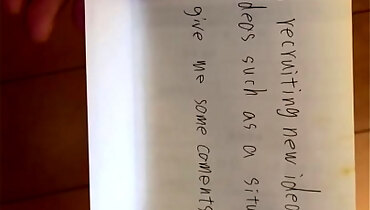 recruiting new idea
deos such as a situ
give me some coments